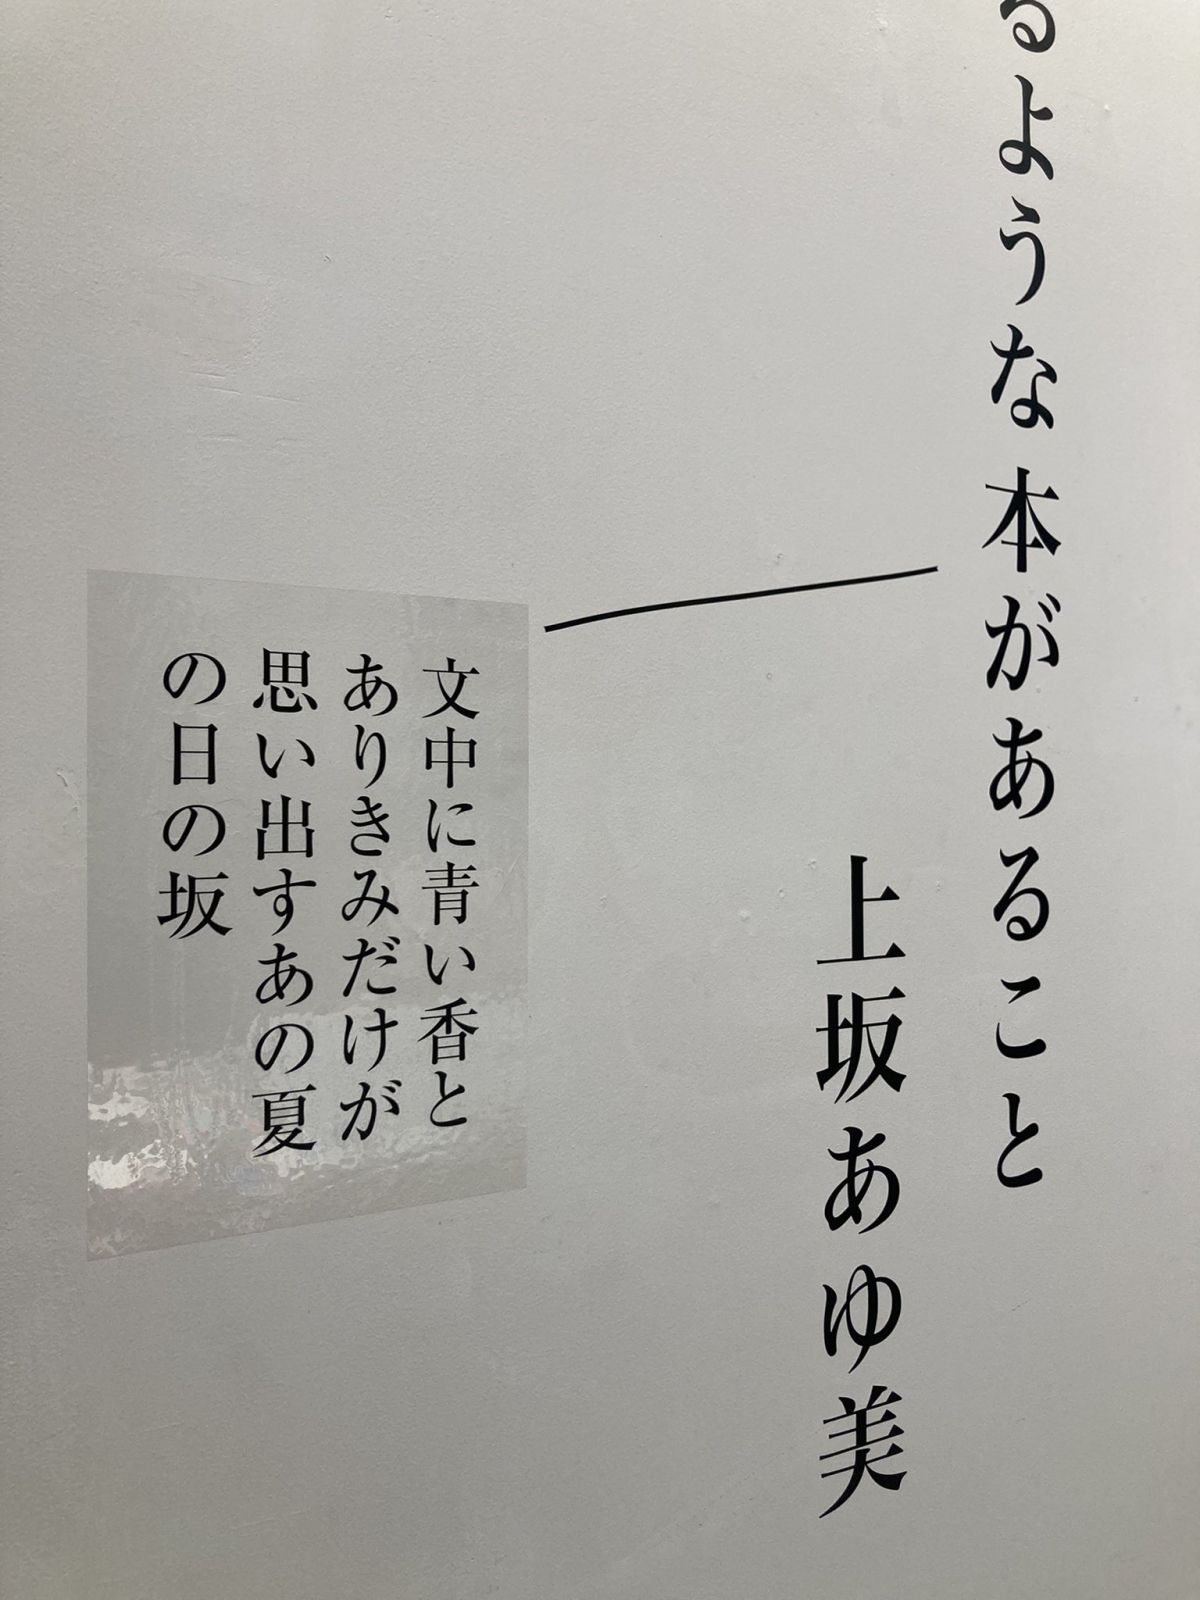 るような本があること
上坂あゆ美
文中に青い香と
ありきみだけが
思い出すあの夏
の日の坂